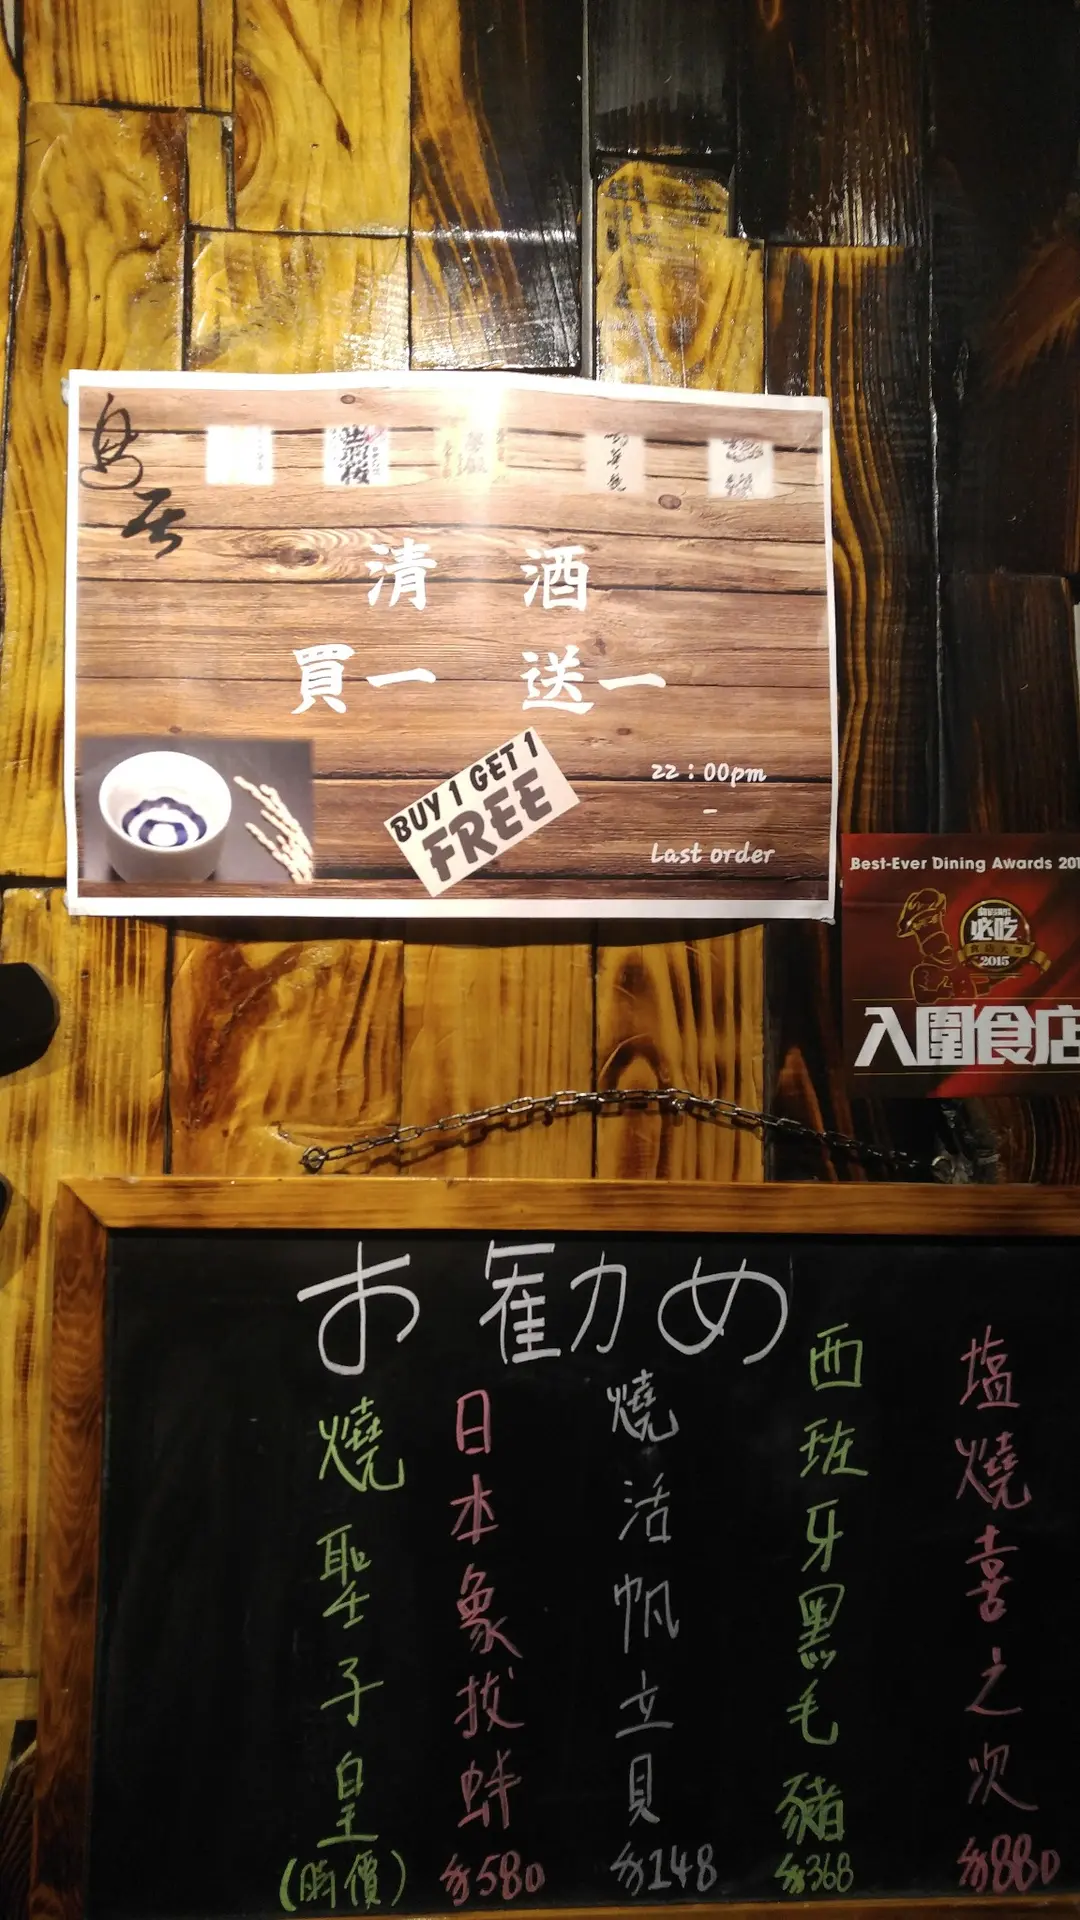 清 酒
買一 送一
BUY 1 GET 1
FREE
22:00pm
-
Last order
Best-Ever Dining Awards 201
必吃
食店大獎
2015
入圍食店
お勧め
塩燒喜之次
$880
西班牙黑毛豬
$368
燒活帆立貝
$148
日本象拔蚌
$580
燒聖子皇
(時價)